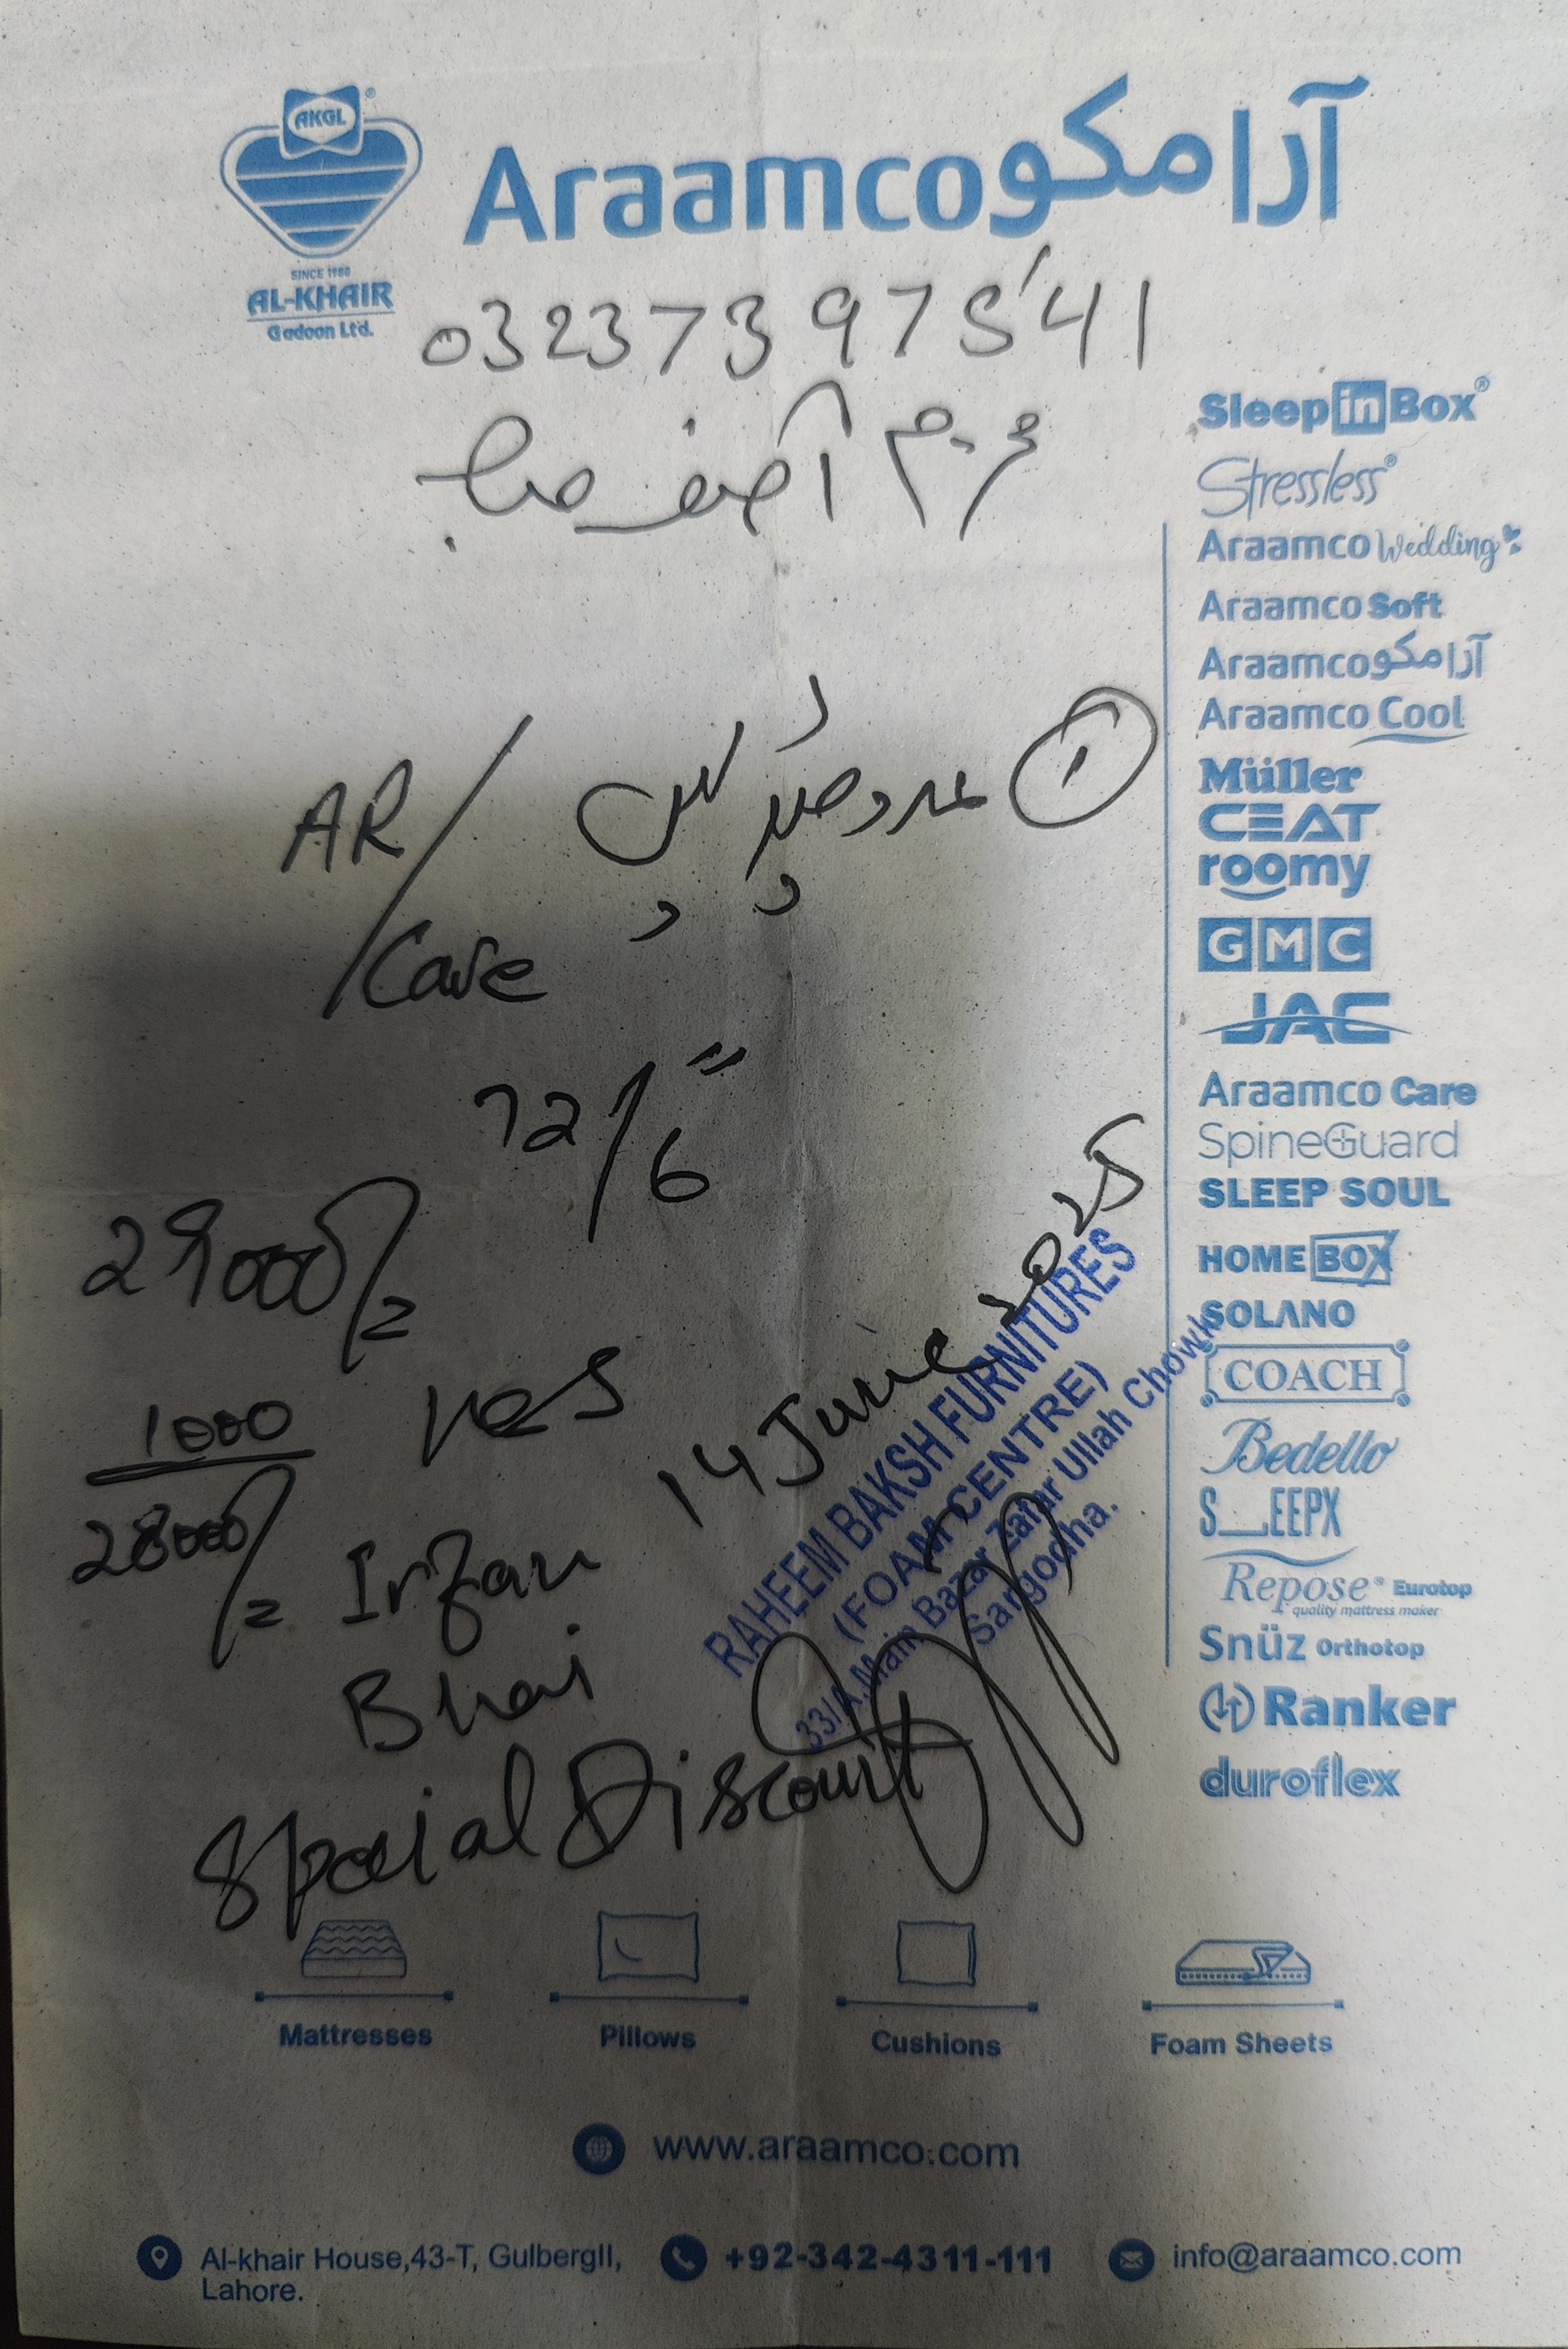 AKGL
SINCE 1980
AL-KHAIR
Gadoon Ltd.
Araamco آرامکو
03237397541
محترم آصف صاحب
SleepinBox
Stressless
Araamco Wedding
Araamco Soft
Araamco آرامکو
Araamco Cool
Müller
CEAT
roomy
GMC
JAC
Araamco Care
SpineGuard
SLEEP SOUL
HOMEBOX
SOLANO
COACH
Bedello
S_EEPX
Repose Eurotop
quality mattress maker
Snüz Orthotop
Ranker
duroflex
① عدد
AR/Care
72/6"
29000/=
1000
28000/=
yes
14 June 2025
Irfan
Bhai
Special Discount
RAHEEM BAKSH FURNITURES
(FOAM CENTRE)
33/A, Main Bazar Zafar Ullah Chowk
Sargodha.
Mattresses
Pillows
Cushions
Foam Sheets
www.araamco.com
Al-khair House,43-T, GulbergII,
Lahore.
+92-342-4311-111
info@araamco.com